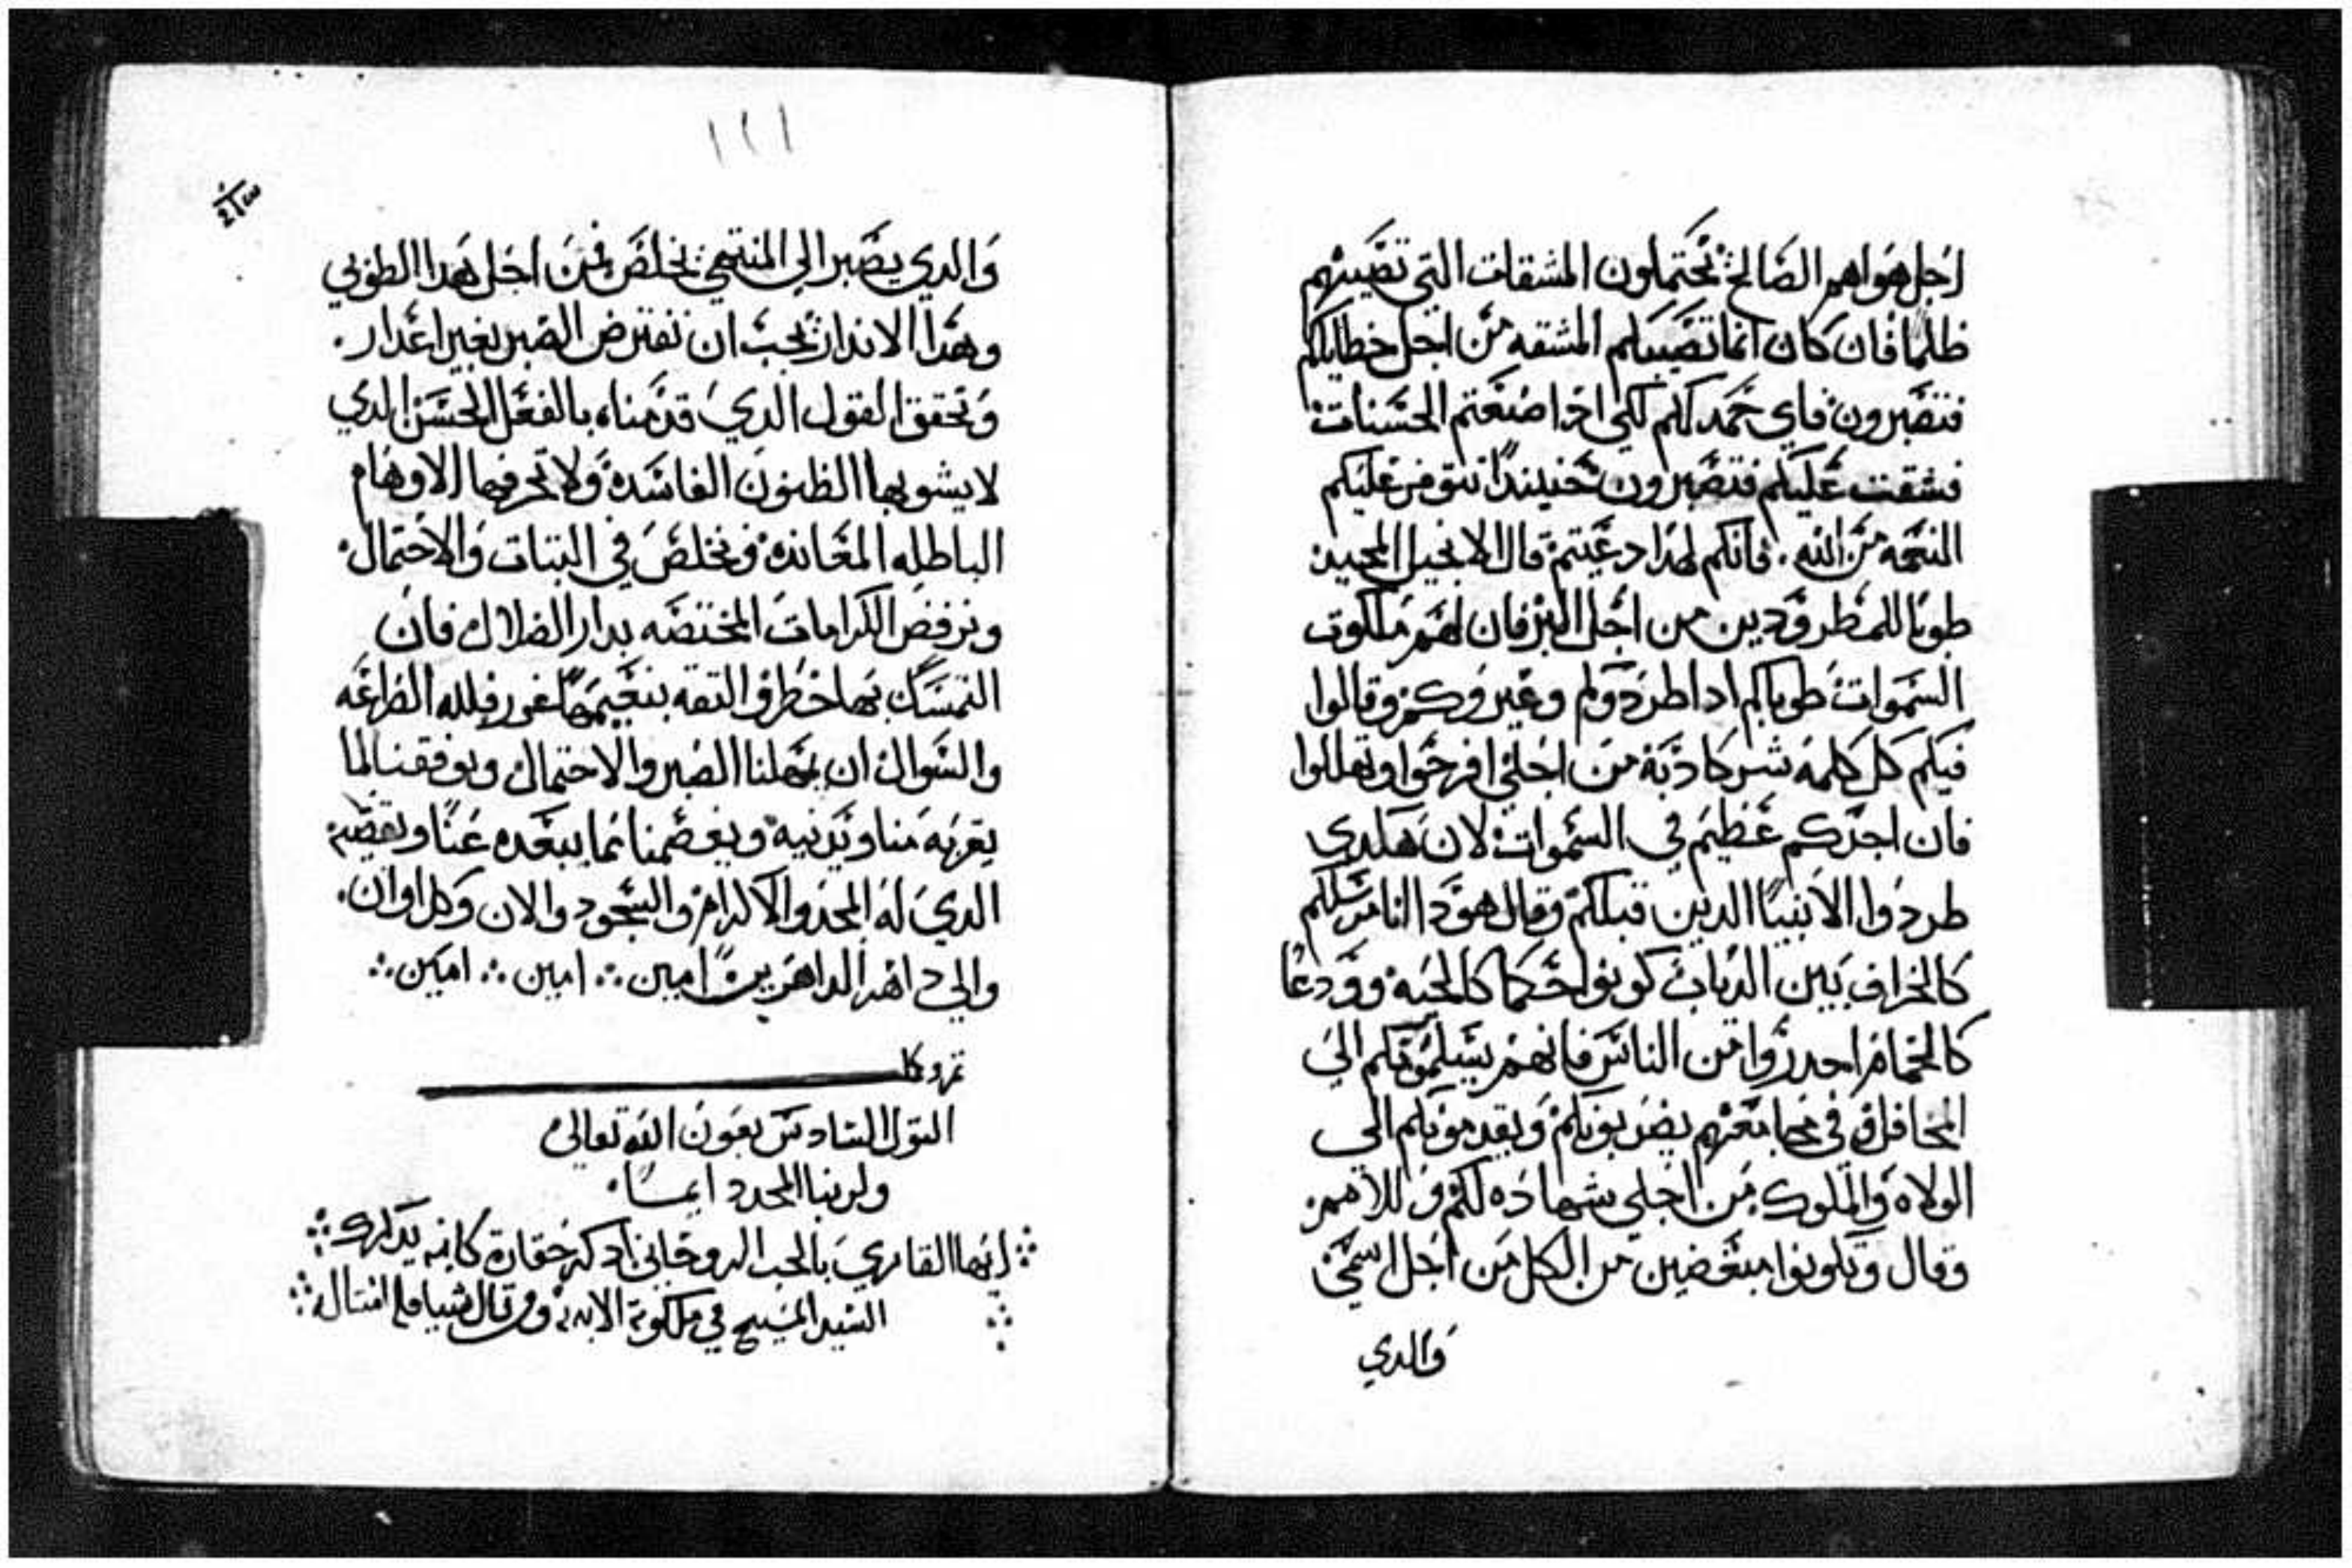 اجل هواهم الصالح يحتملون المشقات التي تصيبهم
ظلما فان كان انما تصيبكم المشقه من اجل خطاياكم
فتصبرون فاي حمد لكم لكن اذا صنعتم الحسنات
فشقت عليكم فتصبرون حينيذا تتوفر عليكم
النعمه من الله . فانكم لهدا دعيتم قال الانجيل المجيد
طوبا للمطرودين من اجل البر فان لهم ملكوت
السموات طوباكم ادا طردوكم وعيروكم وقالوا
فيكم كل كلمه شر كادبة من اجلي افرحوا وتهللوا
فان اجركم عظيم في السموات لان هكدي
طردوا الانبيا الدين قبلكم وقال هودا انا مرسلكم
كالخراف بين الدياب كونوا حكما كالحيه وودعا
كالحمام احدروا من الناس فانهم يسلمونكم الي
المحافل وفي مجامعهم يضربونكم ويقدمونكم الى
الولاه والملوك من اجلي شهاده لكم وللامم
وقال وتكونوا مبغضين من الكل من اجل اسمي
والدي
١١١
والدي يصبر الي المنتهي يخلص فمن اجل هدا الطوبي
وهدا الاندار يجب ان نفترض الصبر بغير اعدار .
ونحقق القول الدي قدمناه بالفعل الحسن الدي
لا يشوبها الظنون الفاسده ولا تحرفها الاوهام
الباطله المعانده ونخلص في التبات والاحتمال
ونرفض الكرامات المختصه بدار الضلال فان
التمسك بها خطر والتقه بنعيمها غرور فلله الضراعه
والسوال ان يجملنا الصبر والاحتمال ويوفقنا لما
يقربه منا ويدنيه ويعصمنا مما يبعده عنا ويقصيه
الدي له المجد والاكرام والسجود والان وكل اوان .
والي داهر الداهرين امين ∴ امين ∴ امين ∴
القول السادس بعون الله تعالى
ولربنا المجد دايما .
ايها القاري بالحب الروحاني ادكر حقارة كاتبه يدكرك
السيد المسيح في ملكوته الابديه ومن قال شيا فله امتاله